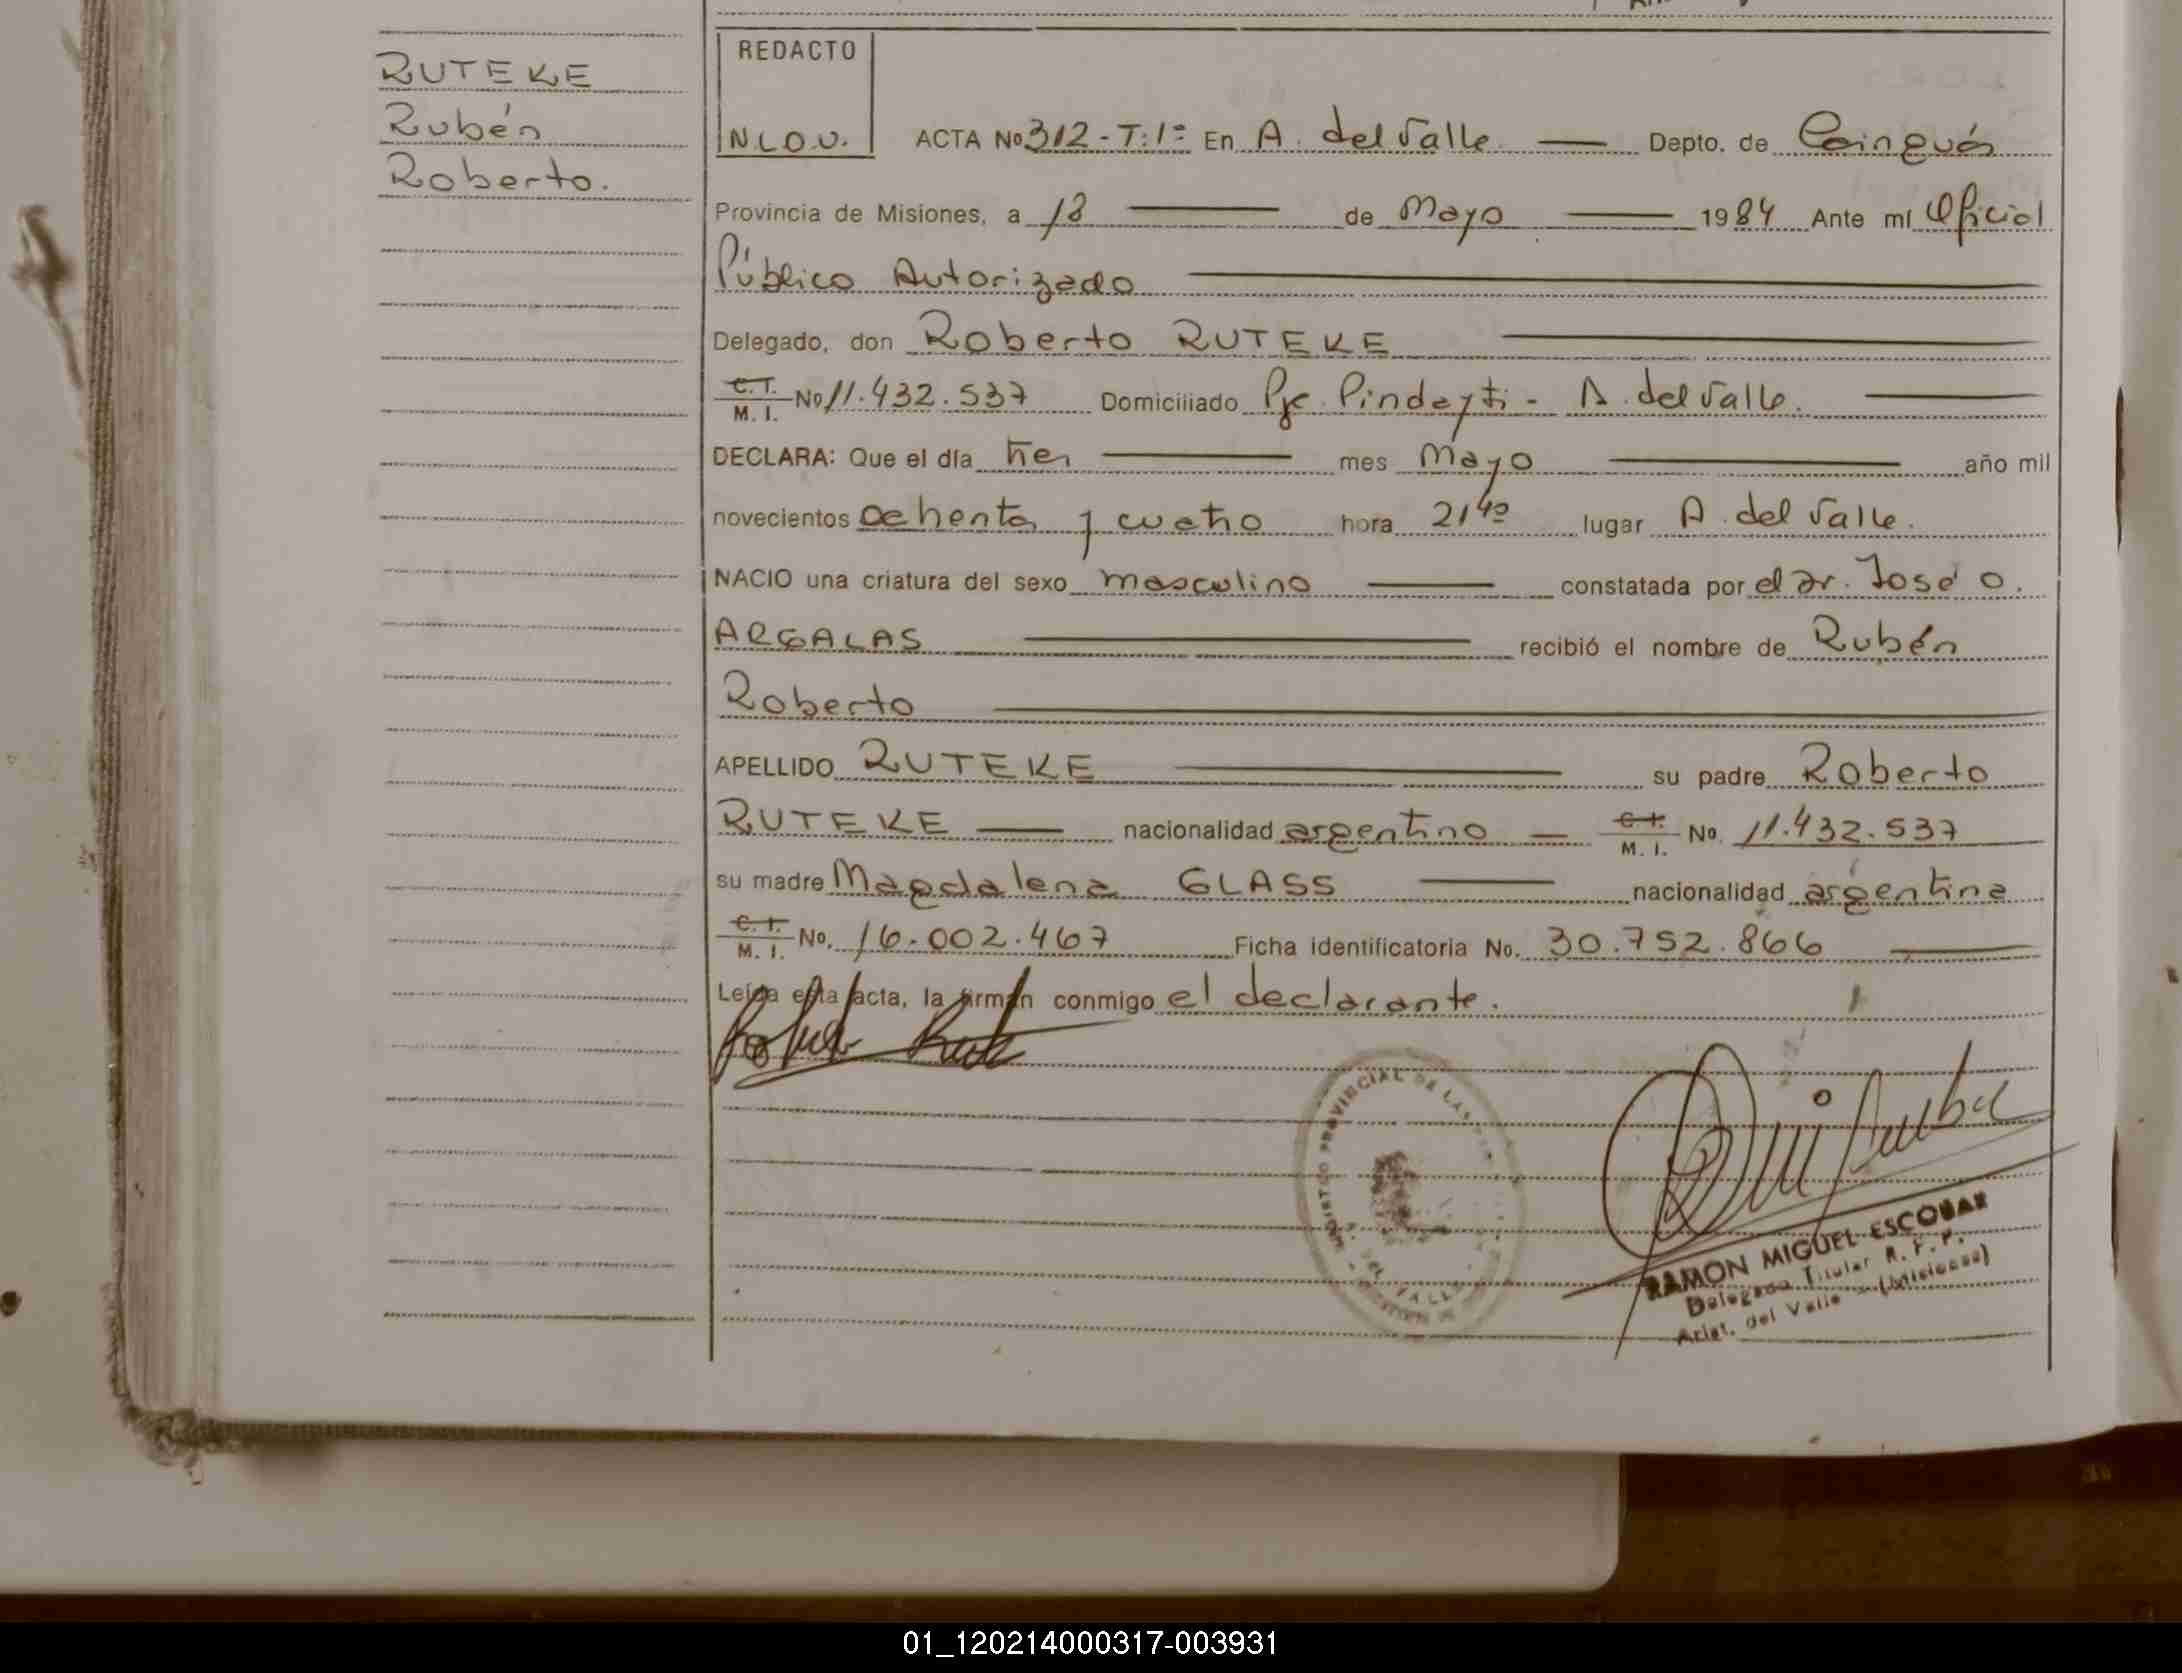 RUTEKE
Rubén
Roberto.
REDACTO
N.L.O.V.
ACTA No 312 - T: 1º En A. del Valle Depto. de Cainguás
Provincia de Misiones, a 18 de Mayo 1984 Ante mí Oficial
Público Autorizado
Delegado, don Roberto RUTEKE
C.I. M. I. No 11.432.537 Domiciliado Pje. Pindayti - A. del Valle.
DECLARA: Que el día tres mes Mayo año mil
novecientos ochenta y cuatro hora 21 40 lugar A. del Valle.
NACIO una criatura del sexo masculino constatada por el Dr. José O.
ARGALAS recibió el nombre de Rubén
Roberto
APELLIDO RUTEKE su padre Roberto
RUTEKE nacionalidad argentino C.I. M. I. No. 11.432.537
su madre Magdalena GLASS nacionalidad argentina
C.I. M. I. No. 16.002.467 Ficha identificatoria No. 30.752.866
Leída esta acta, la firman conmigo el declarante.
REGISTRO PROVINCIAL DE LAS
DEL VALLE
RAMON MIGUEL ESCOBAR
Delegado Titular R. P. P.
Arist. del Valle - (Misiones)
01_120214000317-003931